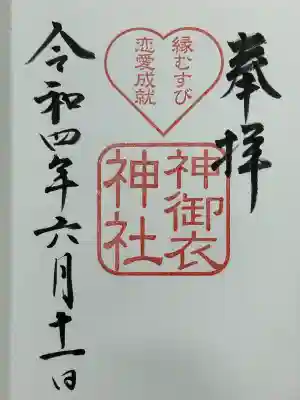 奉拝
縁むすび
恋愛成就
神御衣
神社
令和四年六月十一日